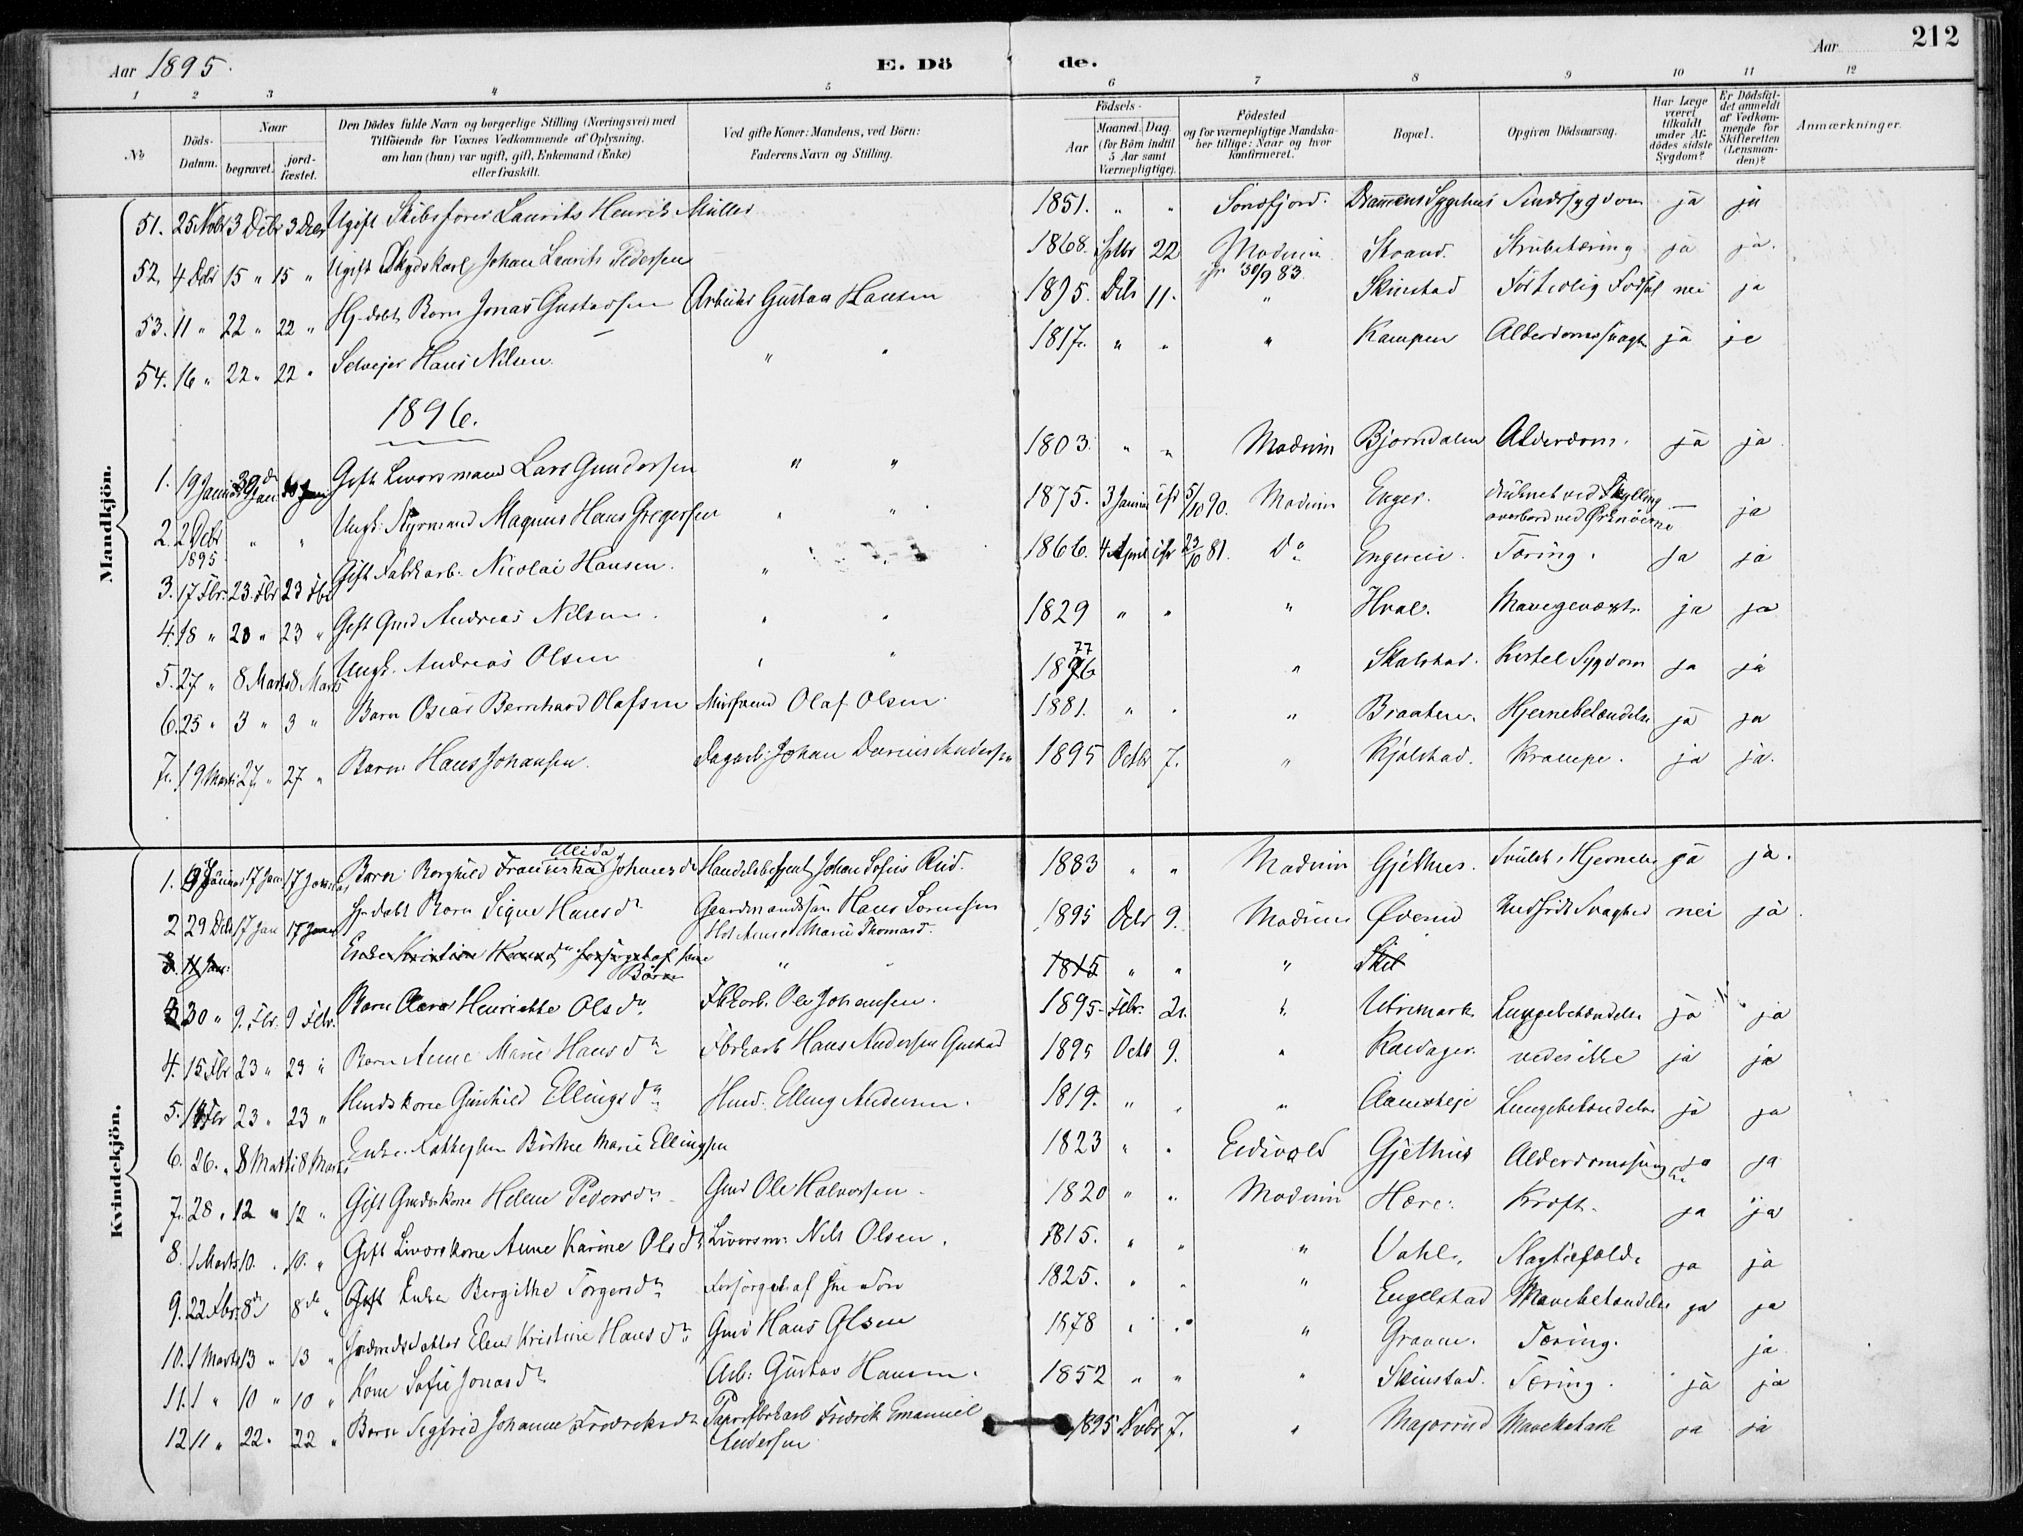 212
Aar 1895. E. Dö de. Aar
1 2 3 4 5 6 7 8 9 10 11 12
No Döds-Datum. Naar begravet. jord-fæstet. Den Dödes fulde Navn og borgerlige Stilling (Næringsvei) med Tilföiende for Voxnes Vedkommende af Oplysning, om han (hun) var ugift, gift, Enkemand (Enke) eller fraskilt. Ved gifte Koner: Mandens, ved Börn: Faderens Navn og Stilling. Födsels- Aar Maaned. Dag. (for Börn indtil 5 Aar samt Værnepligtige). Födested og for værnepligtige Mandskaber tillige: Naar og hvor konfirmeret. Bopæl. Opgiven Dödsaarsag. Har Læge været tilkaldt under Afdödes sidste Sygdom? Er Dödsfaldet anmeldt af Vedkommende for Skifteretten (Lensmanden)? Anmærkninger.
Mandkjön.
51. 25 Novbr 3 Debr 3 Debr Ugift Skibsförer Laurits Henrik Müller 1851. " " Söndfjord. Drammens Sygehus Sindssygdom ja ja
52. 4 Debr 15 " 15 " Ugift Skydskarl Johan Laurits Pedersen 1868. Sptbr 22 Modum 30/9 83 Strand. Strubetæring ja ja.
53. 11 " 22 " 22 " Hj-döbt Barn Jonas Gustavsen Arbeider Gustav Hansen 1895. Debr 11. " Skinstad For tidlig Födsel nei ja
54. 16 " 22 " 22 " Selveier Hans Nilsen " " 1817. " " " Kampen Alderdomssvagh ja ja
1896.
1. 19 Januar 30 Jan Gift Livörsmand Lars Gundersen " " 1803. " " Modum Bjorndalen Alderdom. ja ja
2. 2 Debr 1895 " " Ungk. Styrmand Magnus Hans Gregersen " " 1875. 3 Januar 5/10 90. Modum Enger. druknet ved Skylling overbord ved — ja
3. 17 Fbr. 23 Fbr 23 Fbr Gift Fabrkarb. Nicolai Hansen. " 1866. 4 April 23/10 81. Do Engereie. Tæring. ja ja
4. 18 " 23 " 23 " Gift Gmd Andreas Nilsen. " " 1829 " " " Hval. Mavegevæxt. ja ja
5. 27 " 8 Marts 8 Marts Ungk. Andreas Olsen " " 1877 " Skalstad. Kirtel Sygdom ja ja
6. 25 " 3 " 3 " Barn Oscar Bernhard Olafsen Olaf Olsen. 1881. " " " Braaten. Hjernebetændelse ja ja
7. 19 Marts 27 " 27 " Barn Hans Johansen. Dagarb. Johan Andersen 1895 Octbr 7. " Kjölstad. Krampe. ja ja.
Kvindekjön.
1. Januar 17 Jan 17 Januar Barn Borghild Franciska Alida Johansdr Handelsbetjent Johan Rud. 1883 " " Modum Gjethus. Hjerneb. ja ja.
2 29 Debr 17 Jan 17 Januar Hj. döbt Barn Signe Hansdr Gaardmandssön Hans Sorensen Anne Marie Thomasd. 1895 Debr 9. Modum Överud Medfödt Svaghed nei ja.
3. 11 Jan: Enke Kristine forsörget af sine Börn " " 1815 " " "
3 30 " 9. Fbr. 9 Febr. Barn Clara Henriette Olsdr Fbkarb. Ole Johansen. 1895. Febr. 21. " Lungebetændelse ja ja
4. 15 Fbr 23 " 23 " Barn Anne Marie Hansdr Fbrkarb Hans Andersen 1895 Octb 9. " vedes ikke ja ja
5. 18 Fbr 23 " 23 " Husmdskone Gunhild Ellingsdr Husmd. Elling Andersen. 1819. " " " Lungebetændelse ja ja
6. 26. " 8 Marts 8 Marts Enke Birthe Marie Ellingsen 1823 " " Eidsvold Gjethus Alderdomssvagh ja ja
7. 28 " 12 " 12 " Gift Gmdskone Helene Pedersdr. Gmd Ole Halvorsen. 1820 " " Modum Hære. Kræft. ja ja
8. 1 Marts 10. " 10. " Gift Livörskone Anne Karine Olsdr Livörsm. Nils Olsen. 1815. " " " Vahl. Slagtilfælde ja ja
9. 22 Fbr. 8de 8de " Gift Enke Bergithe Torgersdr Forsörget af sine Sön 1825. " " " Engelstad Mavebetændelse ja ja
10. 1 Marts 13 " 13 " Gmdmdsdatter Elen Kristine Hansdr Gmd Hans Olsen 1878 " " " Graven. Tæring. ja
11. 1 " 10 " 10 " Kone Sofie Jonasdr Arb: Gustav Hansen. 1852 " " " Skinstad. Tæring. ja ja
12 11 " 22. 22 " Barn Sigfrid Johanne Fredriksdr Papirfbrkarb Fredrik Emanuel Andersen 1895 Novbr 7. " Majorrud Mavekatarh ja ja